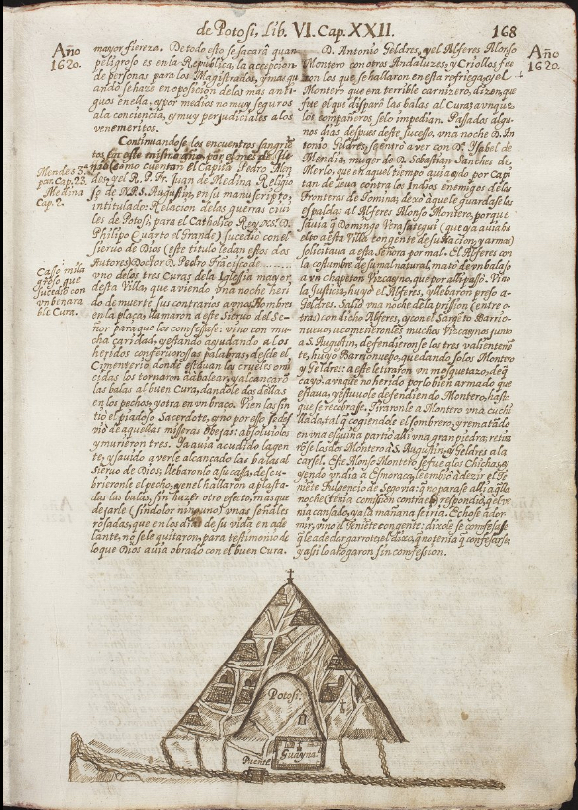 de Potosi, Lib. VI. Cap. XXII.
168
Año
1620.
mayor fiereza. De todo esto se sacará quan
peligroso es en la República, la acepcion
de personas para los Magistrados, y mas qu
ando se haze en oposicion de los mas anti-
guos en ella, y por medios no muy seguros
a la conciencia, y muy perjudiciales a los
venemeritos.
Continuandose los encuentros sangrie
tos en este mismo año, por el mes de
como cuentan el Capitã Pedro Men
dez, y el R. P. Fr. Juan de Medina Religio
so de N. P. S. Augustin, en su manuscripto,
intitulado: Relacion de las guerras civi
les de Potosi, para el Catholico Rey N. S. D.
Philipo Quarto el Grande) sucedió con el
siervo de Dios (este titulo le dan estos dos
Autores) Doctor D. Pedro Francisco de
uno de los tres Curas de la Iglesia mayor
desta Villa, que aviendo una noche heri
do de muerte sus contrarios a unos Hombres
en la plaça, llamaron a este Siervo del Se-
ñor para que los confessase: vino con mu
cha caridad, y estando ayudando a los
heridos con fervorosas palabras, desde el
Cimenterio donde estavan los crueles omi
cidas los tornaron a abalear, y alcançarõ
las balas al buen Cura, dandole dos dellas
en los pechos, y otra en un braço. Bien las sin
tió el piadoso Sacerdote, y no por esso se des
vió de aquellas miseras obejas: absolviolos
y murieron tres. Ya avia acudido la gen
te, y savido averle alcançado las balas al
siervo de Dios; llebaronlo a su casa, descu-
brieronle el pecho, y en el hallaron aplasta-
das las balas, sin hazer otro efeto, mas que
dejarle (sin dolor ninguno) unas señales
rosadas, que en los dias de su vida en ade
lante, no se le quitaron, para testimonio de
lo que Dios avia obrado con el buen Cura.
Mendes 3.
par. Cap. 23.
Medina
Cap. 2.
Caso mila
groso que
sucedió con
un benera
ble Cura.
Año
1620.
D. Antonio Geldres, y el Alferes Alonso
Montero con otros Andaluzes, y Criollos fue
ron los que se hallaron en esta rofriega, y el
Montero que era terrible carnizero, dizen, que
fue el que disparó las balas al Cura; aunque
los compañeros se lo impedian. Passados algu-
nos dias despues deste sucesso, una noche D. An
tonio Geldres, se entró a ver con D. Ysabel de
Mendia, muger de D. Sebastian Sanches de
Merlo, que en aquel tiempo avia ydo por Capi
tan de leva contra los Indios enemigos de las
Fronteras de Tomina; dexó a que le guardase las
espaldas al Alferes Alonso Montero, porque
savia q Domingo Verasategui (que ya avia bu
elto a esta Villa con gente de su Nacion, y armas)
solicitava a esta Señora por mal. El Alferes con
la costumbre de su mal natural, mató de un balaso
a un chapeton Vizcayno, que por alli passó. Vino
la Justicia, huyó el Alferes, y llebaron preso a
Geldres. Salió una noche de la prission (entre o
tras) con dicho Alferes, y con el Sargento Barrio-
nuevo, acometieronles muchos Vizcaynos junto
a S. Augustin, defendieronse los tres valientemẽ
te, huyó Barrionuevo, quedando solos Montero
y Geldres: a este le tiraron un mosquetazo, de q
cayó, aunque no herido por lo bien armado que
estava, y estuvole defendiendo Montero, hasta
que se recobrase. Tiraronle a Montero una cuchi
llada, tal q cogiendole el sombrero, y rematado
en una esquina partió alli una gran piedra; retira
rõse los dos Montero a S. Augustin, y Geldres a la
carsel. Este Alonso Montero se fue a los Chichas, y
yendo un dia a Esmoraca, le embió a dezir el Te
niete Fulgencio de Segovia: q̃ no parase alli aquella
noche (tenia comission contra el) respondió, q̃ el ve
nia cansado, y a la mañana se iria. Echose a dor
mir, vino el Teniete con gente: dixole se confesase
q̃ le a de dar garrote; el dixo, q̃ no tenia q confesarse,
y assi lo ahogaron sin confession.
Potosi
Guayna
Puente